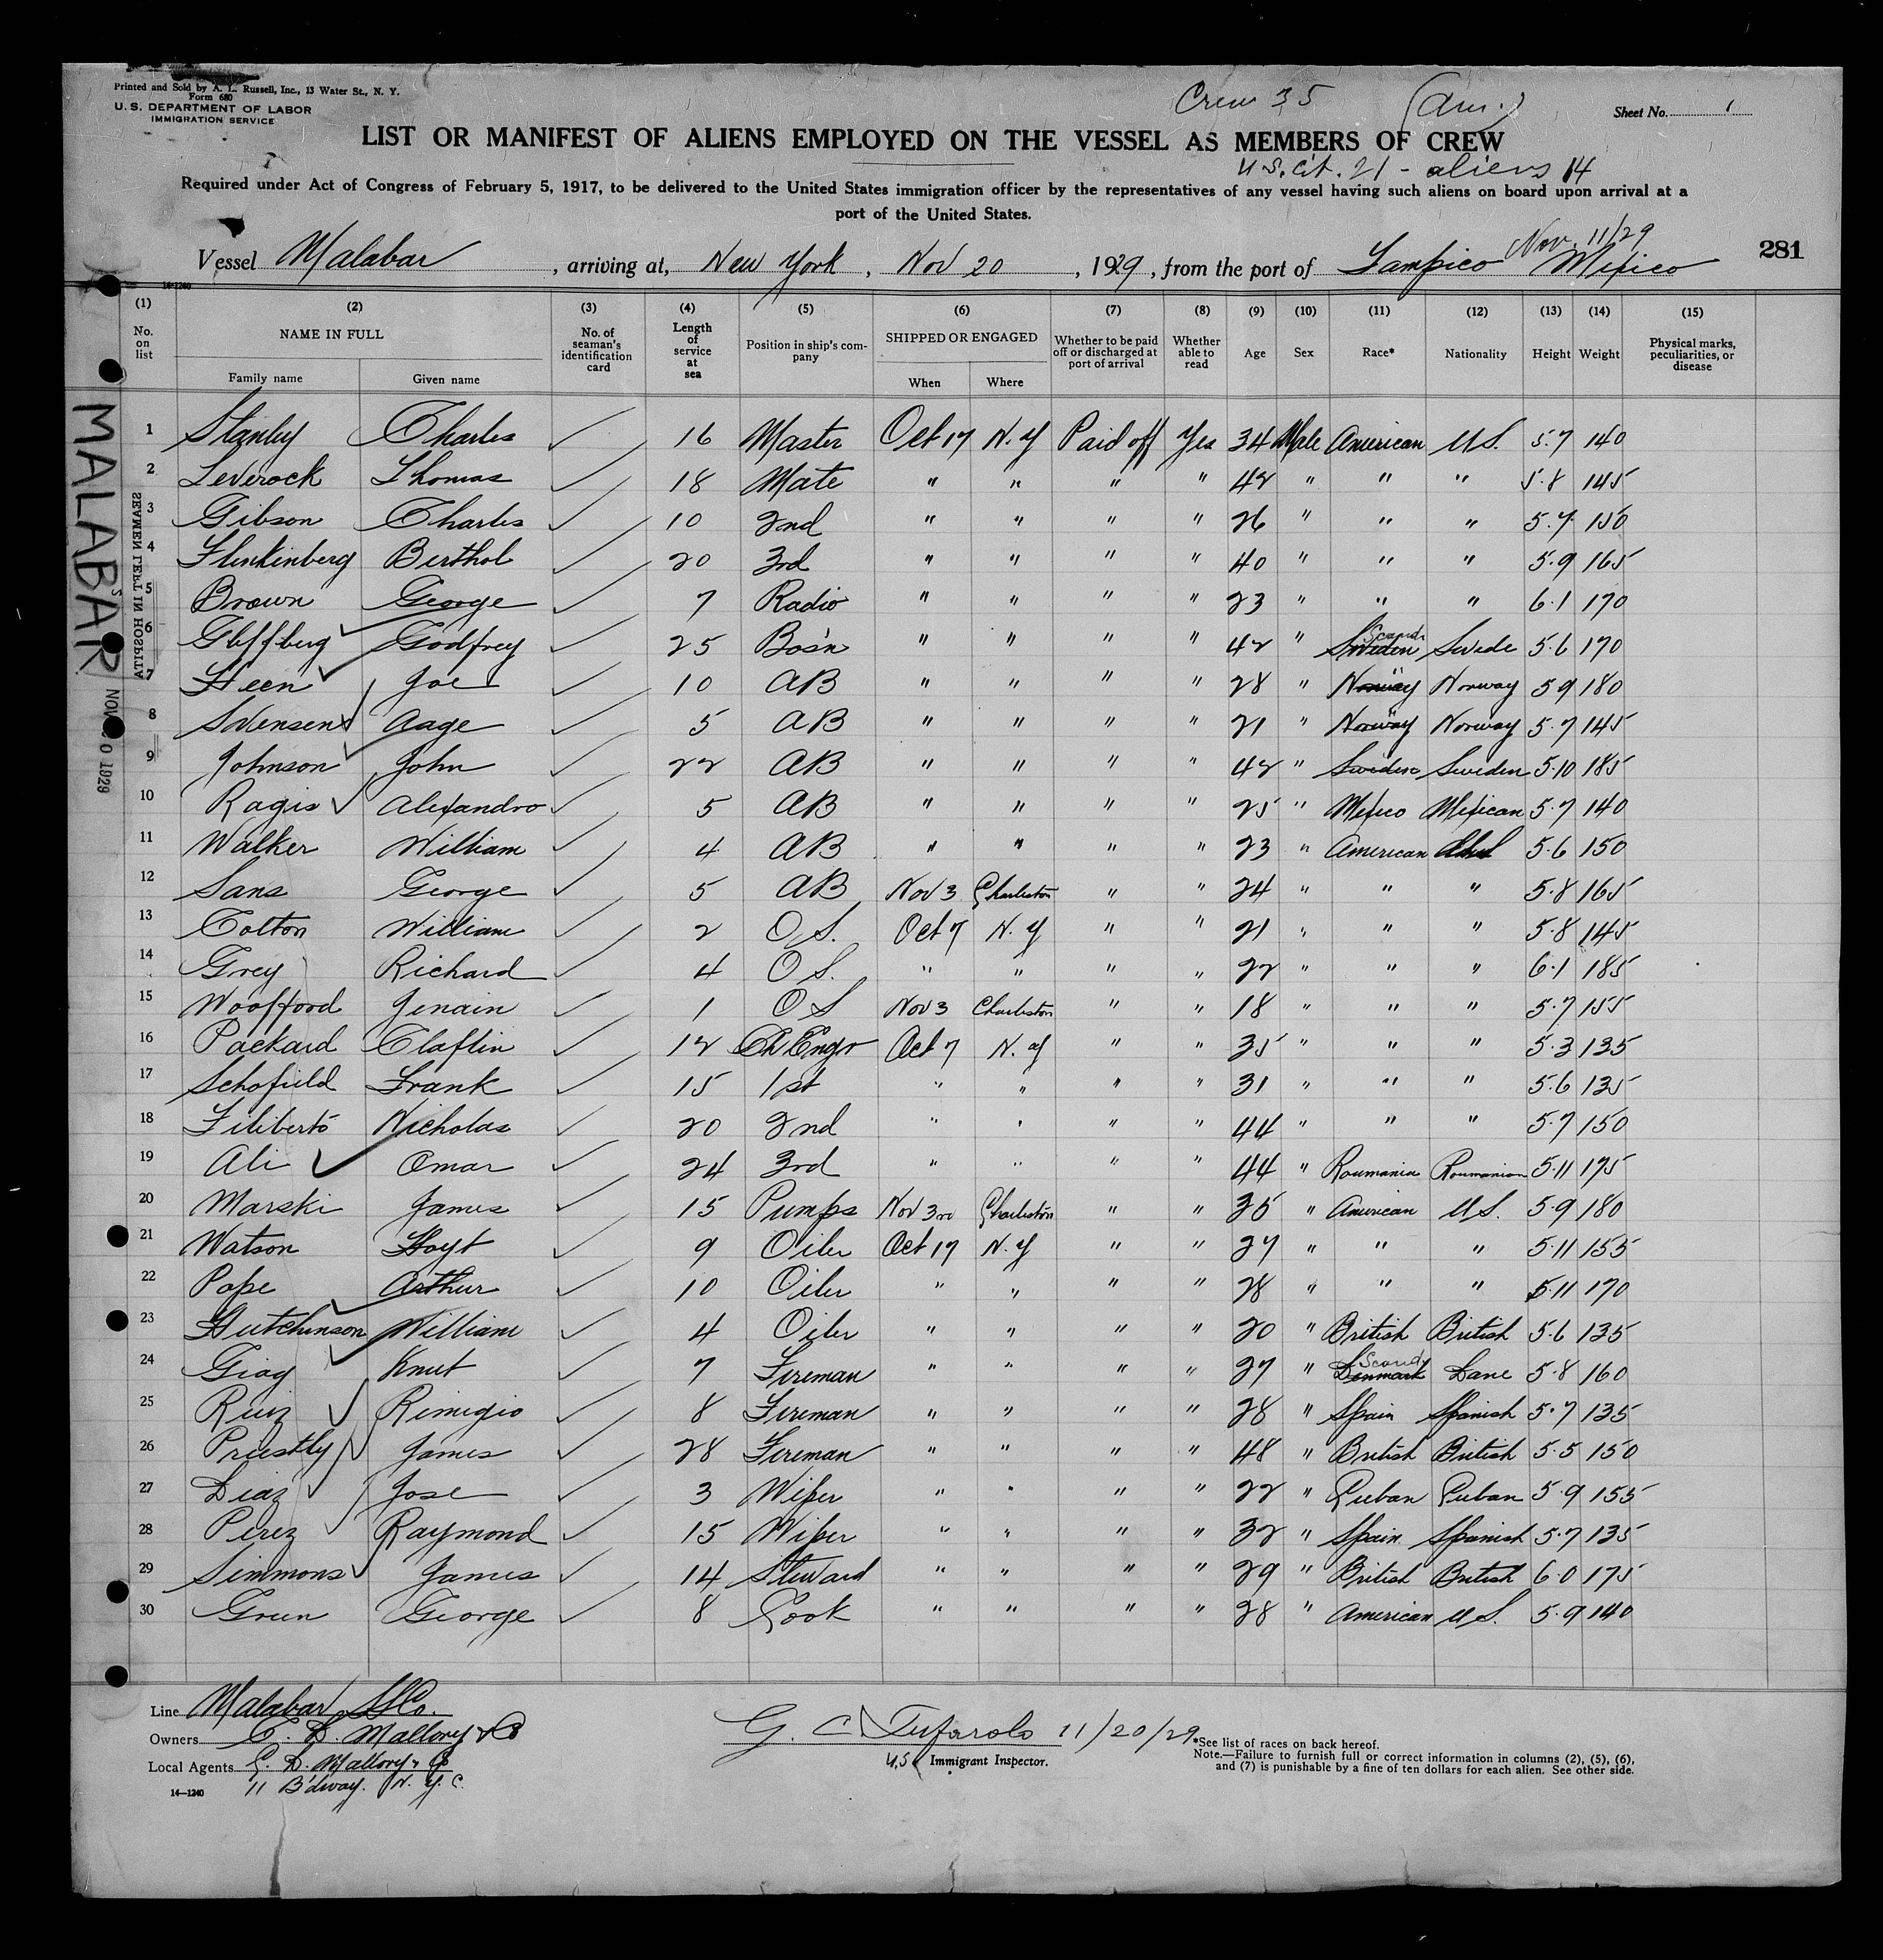 Printed and Sold by A. L. Russell, Inc., 13 Water St., N. Y.
Form 680
U. S. DEPARTMENT OF LABOR
IMMIGRATION SERVICE
Crew 35 (Am.)
Sheet No. 1
LIST OR MANIFEST OF ALIENS EMPLOYED ON THE VESSEL AS MEMBERS OF CREW
U.S. Cit. 21 - aliens 14
Required under Act of Congress of February 5, 1917, to be delivered to the United States immigration officer by the representatives of any vessel having such aliens on board upon arrival at a
port of the United States.
Nov. 11/29
Vessel Malabar, arriving at, New York, Nov 20, 1929, from the port of Tampico Mexico
281
14-1240
(1) (2) (3) (4) (5) (6) (7) (8) (9) (10) (11) (12) (13) (14) (15)
No. on list
NAME IN FULL
Family name
Given name
No. of seaman's identification card
Length of service at sea
Position in ship's company
SHIPPED OR ENGAGED
When
Where
Whether to be paid off or discharged at port of arrival
Whether able to read
Age
Sex
Race*
Nationality
Height
Weight
Physical marks, peculiarities, or disease
1 Stanley Charles 16 Master Oct 17 N.Y Paid off Yes 34 Male American U.S. 5.7 140
2 Leverock Thomas 18 Mate " " " " 42 " " " 5.8 145
3 Gibson Charles 10 2nd " " " " 26 " " " 5.7 150
4 Flinkinberg Berthol 20 3rd " " " " 40 " " " 5.9 165
5 Brown George 7 Radio " " " " 23 " " " 6.1 170
6 Godfrey 25 Bos'n " " " " 42 " Sweden Scand. Swede 5.6 170
7 Heen Joe 10 AB " " " " 28 " Norway Norway 5 9 180
8 Svensen Aage 5 AB " " " " 21 " Norway Norway 5.7 145
9 Johnson John 22 AB " " " " 42 " Sweden Sweden 5.10 185
10 Ragis Alexandro 5 AB " " " " 25 " Mexico Mexican 5.7 140
11 Walker William 4 AB " " " " 23 " American 5.6 150
12 Sans George 5 AB Nov 3 Charleston " " 24 " " " 5.8 165
13 Colton William 2 O S. Oct 7 N. Y " " 21 " " " 5.8 145
14 Grey Richard 4 O S. " " " " 22 " " " 6.1 185
15 Woofford Jenain 1 O S Nov 3 Charleston " " 18 " " " 5.7 155
16 Packard Claflin 12 Ch Engr Oct 7 N. Y " " 35 " " " 5.3 135
17 Schofield Frank 15 1st " " " " 31 " " " 5.6 135
18 Filiberto Nicholas 20 2nd " " " " 44 " " " 5.7 150
19 Ali Omar 24 3rd " " " " 44 " Roumania Roumanian 5.11 175
20 Marski James 15 Pumps Nov 3rd Charleston " " 35 " American U S. 5.9 180
21 Watson Hoyt 9 Oiler Oct 17 N. Y " " 27 " " " 5.11 155
22 Pope Arthur 10 Oiler " " " " 28 " " " 5.11 170
23 Hutchinson William 4 Oiler " " " " 20 " British British 5.6 135
24 Giag Knut 7 Fireman " " " " 27 " Denmark Scand. Dane 5.8 160
25 Ruiz Rimigio 8 Fireman " " " " 28 " Spain Spanish 5.7 135
26 Priestly James 28 Fireman " " " " 48 " British British 5.5 150
27 Diaz Jose 3 Wiper " " " " 22 " Cuban Cuban 5.9 155
28 Perez Raymond 15 Wiper " " " " 32 " Spain Spanish 5.7 135
29 Simmons James 14 Steward " " " " 29 " British British 6.0 175
30 Green George 8 Cook " " " " 28 " American U S. 5.9 140
MALABAR
SEAMEN LEFT IN HOSPITA
NOV 20 1929
Line Malabar SS Co.
Owners C. D. Mallory & Co
Local Agents C. D. Mallory & Co
11 B'dway. N. Y. C.
14—1240
G. C. Tufarolo 11/20/29
U,S Immigrant Inspector.
*See list of races on back hereof.
Note.—Failure to furnish full or correct information in columns (2), (5), (6),
and (7) is punishable by a fine of ten dollars for each alien. See other side.